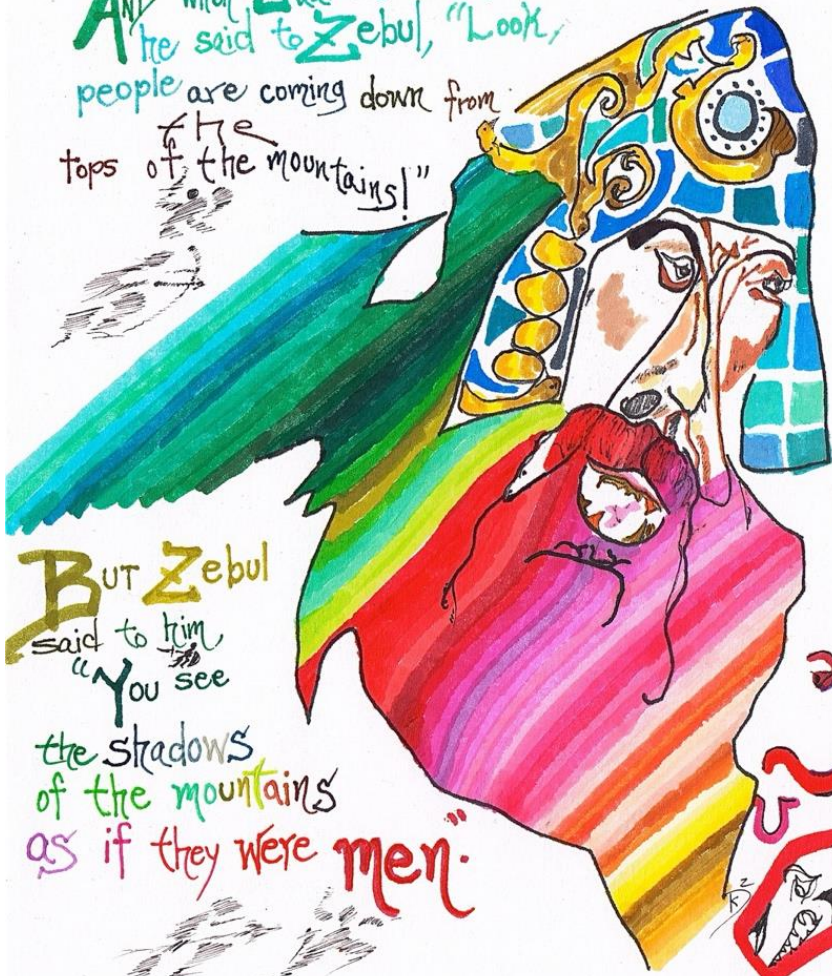 AND when
he said to Zebul, "Look,
people are coming down from
the
tops of the mountains!"
BUT Zebul
said to him
"You see
the shadows
of the mountains
as if they were men."